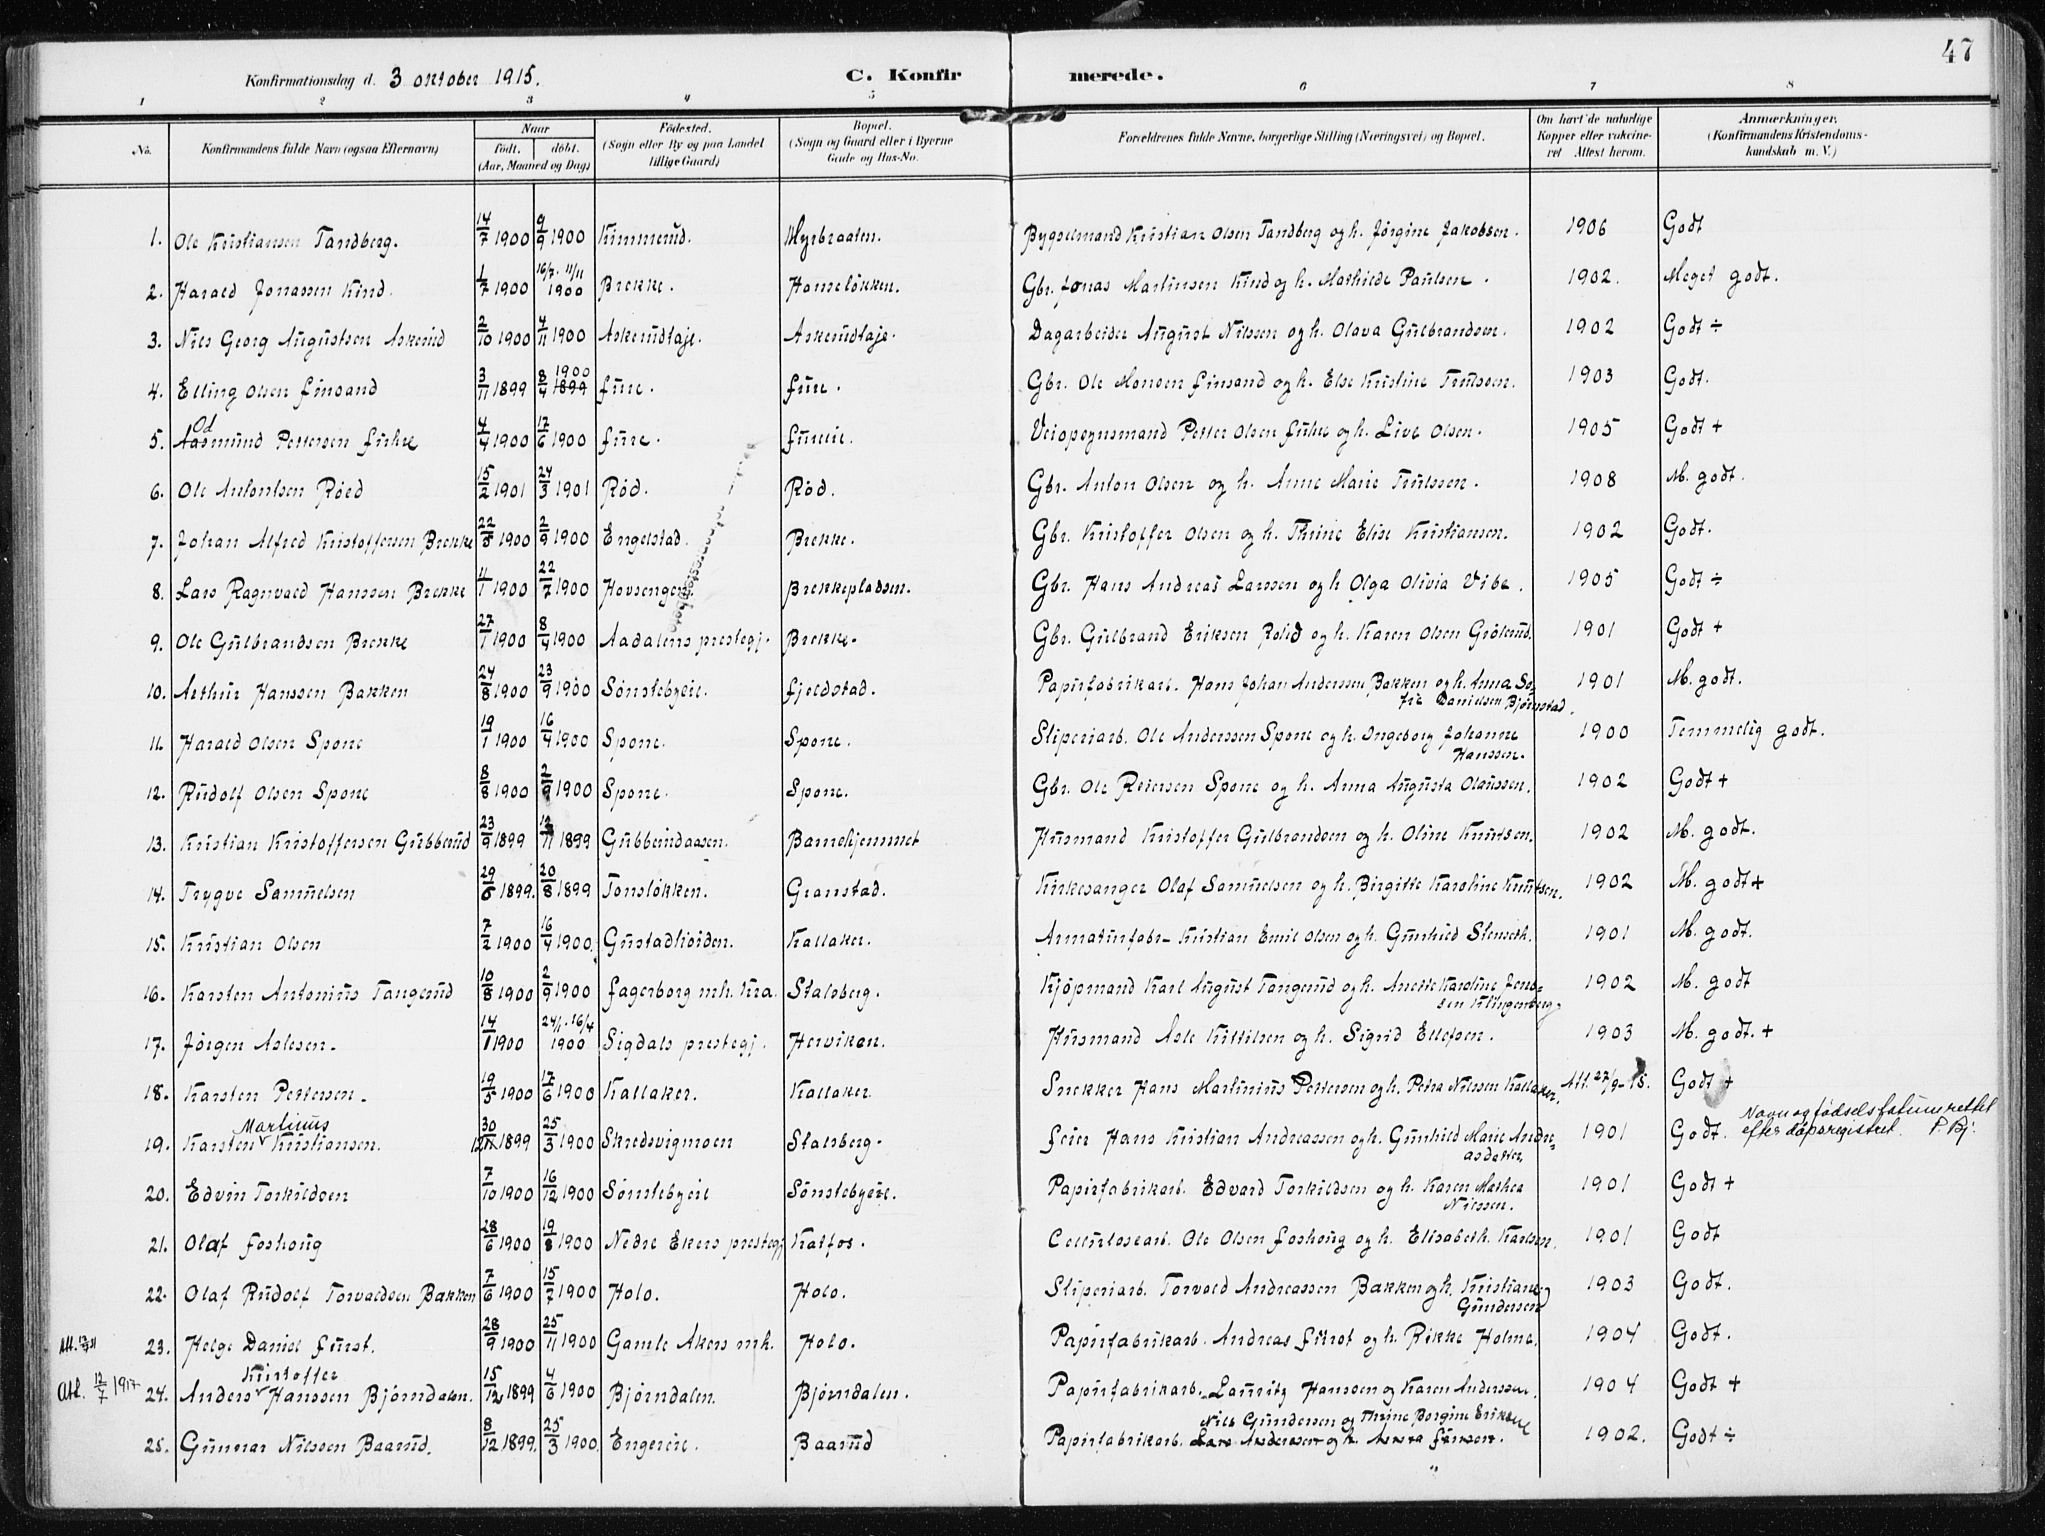 47
Konfirmationsdag d. 3 oktober 1915. C. Konfirmerede.
1 2 3 4 5 6 7 8
No. Konfirmandens fulde Navn (ogsaa Efternavn) Naar født. døbt. (Aar, Maaned og Dag) Fødested. (Sogn eller By og paa Landet tillige Gaard) Bopæl. (Sogn og Gaard eller i Byerne Gade og Hus-No. Forældrenes fulde Navne, borgerlige Stilling (Næringsvei) og Bopæl. Om havt de naturlige Kopper eller vakcineret Attest herom. Anmærkninger. (Konfirmandens Kristendomskundskab m. V.)
1. Ole Kristiansen Tandberg. 14/7 1900 9/9 1900 Kimmerud. Myrbraaten. Bygselmand Kristian Olsen Tandberg og h. Jørgine Jakobsen. 1906 Godt
2. Harald Jonassen Kind. 1/7 1900 16/7. 11/11 1900 Brekke. Hamsløkken. Gbr. Jonas Martinsen Kind og h. Mathilde Paulsen. 1902. Meget godt.
3. Nils Georg Augustsen Askerud 2/10 1900 4/11 1900 Askerudtaje. Askerudtaje. Dagarbeider August Nilssen og h. Olava Gulbrandsen. 1902 Godt ÷
4. Elling Olsen Finsand 3/11 1899 8/4 1900 1899 Fure. Fure. Gbr. Ole Monsen Finsand og h. Else Kristine Trulssen. 1903 Godt.
5. Aasmund Od Pettersen Fuhre 4/4 1900 17/6 1900 Fure. Fureie. Veiopsynsmand Petter Olsen Fuhre og h. Live Olsen. 1905 Godt +
6. Ole Antontsen Røed 15/2 1901 24/3 1901 Rød. Rød. Gbr. Anton Olsen og h. Anne Marie Trulssen. 1908 M. godt.
7. Johan Alfred Kristoffersen Brekke 22/5 1900 2/9 1900 Engelstad. Brekke. Gbr. Kristoffer Olsen og h. Thrine Elise Kristiansen. 1902 Godt.
8. Lars Ragnvald Hanssen Brekke 4/1 1900 22/7 1900 Hovsengen Brekkepladsen. Gbr. Hans Andreas Larssen og h. Olga Olivia Vibe. 1905 Godt ÷
9. Ole Gulbrandsen Brekke 27/1 1900 8/4 1900 Aadalens prestegj. Brekke. Gbr. Gulbrand Eriksen og h. Karen Olsen Grøterud. 1901 Godt +
10. Arthur Hanssen Bakken 24/8 1900 23/9 1900 Sønstebyeie. Fjeldstad. Papirfabrikarb. Hans Johan Anderssen Bakken og h. Anna Sofie Danielsen Bjørnstad. 1901 M. godt.
11. Harald Olsen Spone 19/1 1900 16/4 1900 Spone. Spone. Sliperiarb. Ole Anderssen Spone og h. Ingeborg Johanne Hanssen. 1900 Temmelig godt.
12. Rudolf Olsen Spone 8/8 1900 2/9 1900 Spone. Spone. Gbr. Ole Reiersen Spone og h. Anna Augusta Olaussen. 1902 Godt +
13. Kristian Kristoffersen Gubberud 23/9 1899 12/11 1899 Gubberudaasen. Barnehjemmet Husmand Kristoffer Gulbrandsen og h. Oline Knutsen. 1902 M. godt.
14. Trygve Samuelsen 29/5 1899. 20/8 1899 Tonsløkken. Granstad. Kirkesanger Olaf Samuelsen og h. Birgitte Karoline Knutsen. 1902 M. godt +
15. Kristian Olsen 7/2 1900 16/4 1900. Gustadlioiden. Kallaker. Armaturfabr- Kristian Emil Olsen og h. Gunhild Stenseth. 1901 M. godt.
16. Karsten Antonius Tangerud 10/8 1900 2/9 1900 Fagerborg mh. Kra. Stalsberg. Kjøpmand Karl August Tangerud og h. Anette Karoline Jenssen Klingenberg. 1902 M. godt
17. Jørgen Aslesen. 14/1 1900 24/1. 16/4 1900 Sigdals prestegj. Hervikan. Husmand Asle Kittilsen og h. Sigrid Ellefsen. 1903 M. godt. +
18. Karsten Pettersen. 19/5 1900 17/6 1900 Kallaker. Kallaker. Snekker Hans Martinius Pettersen og h. Petra Nilssen Kallaker. Att. 27/9-15. Godt +
19. Karsten Martinus Kristiansen. 30/12 11 1899 25/3 1900 Skredsvigmoen Stalsberg. Feier Hans Kristian Andreassen og h. Gunhild Marie Andreasdatter. 1901 Godt. Navn og fødselsdatum rettet efter dåpsregistret. P. Bj.
20. Edvin Torkildsen 7/10 1900 16/12 1900 Sønstebyeie Sønstebyeie. Papirfabrikarb. Edvard Torkildsen og h. Karen Mathea Nilssen. 1901 Godt +
21. Olaf Foshoug 28/6 1900 19/8 1900 Nedre Ekers prestegj Katfos. Cellulosearb. Ole Olsen Foshoug og h. Elisabeth Karlsen. 1901 Godt
22. Olaf Rudolf Torvaldsen Bakken 7/6 1900 15/7 1900 Holo. Holo. Sliperiarb. Torvald Andreassen Bakken og h. Kristiane Gundersen 1903 Godt.
23. Helge Daniel Furst. 28/9 1900 25/11 1900 Gamle Akers mh. Holo. Papirfabrikarb. Andreas Fürst og h. Rikke Holme. 1904 Godt.
Att. 12/7 1917 24. Anders Kristoffer Hanssen Bjørndalen. 15/12 1899 4/6 1900 Bjørndalen. Bjørndalen. Papirfabrikarb. Lauritz Hanssen og Karen Anderssen. 1904 Godt +
25. Gunnar Nilssen Baarud. 8/12 1899. 25/3 1900. Engereie. Baarud Papirfabrikarb. Nils Gundersen og Thrine Borgine Eriksen Lars Anderssen og h. Anna Jensen. 1902. Godt ÷